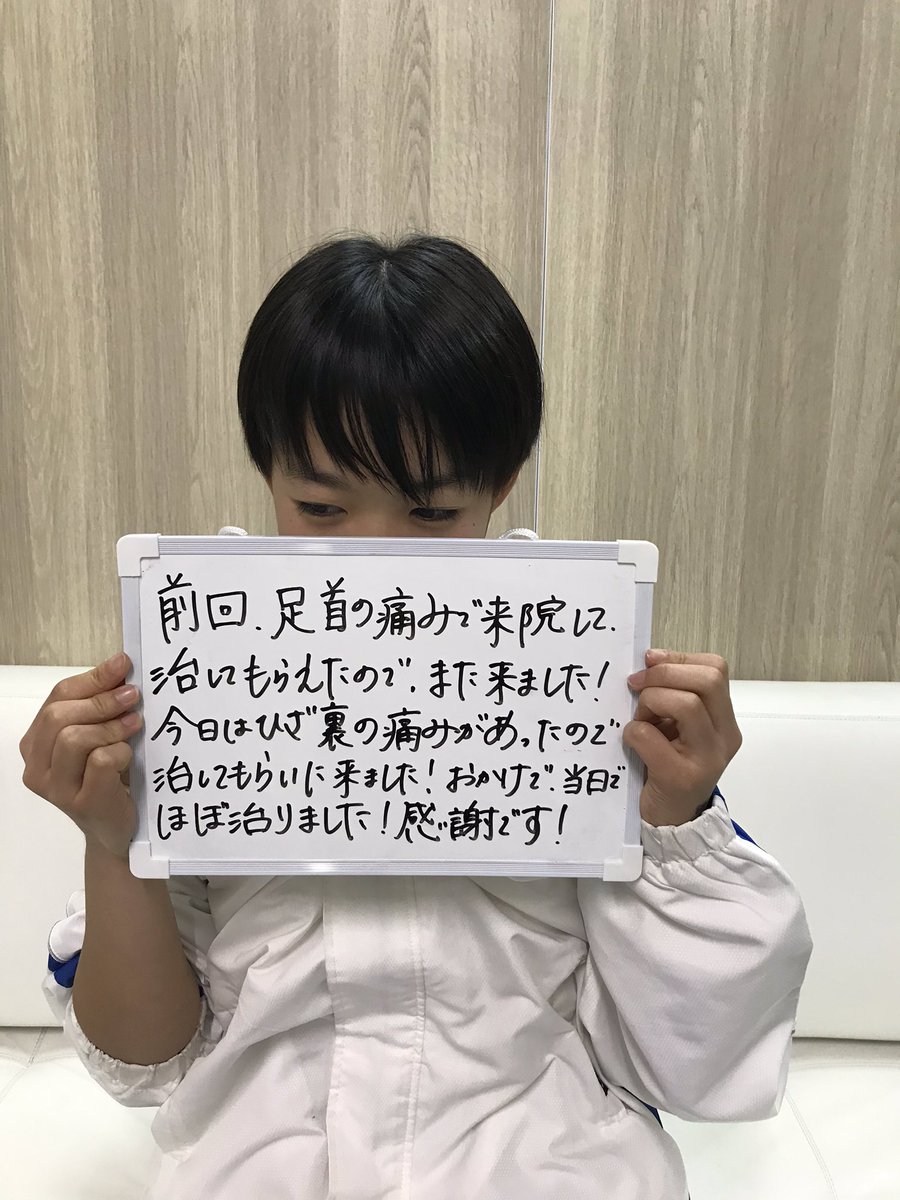 前回、足首の痛みで来院して、
治してもらえたので、また来ました!
今日はひざ裏の痛みがあったので
治してもらいに来ました!おかげで、当日で
ほぼ治りました!感謝です!